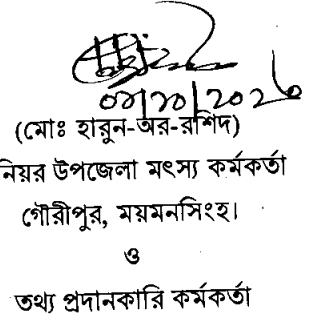 (মোঃ হারুন-অর-রশিদ)
নিয়র উপজেলা মৎস্য কর্মকর্তা
গৌরীপুর, ময়মনসিংহ।
ও
তথ্য প্রদানকারি কর্মকর্তা